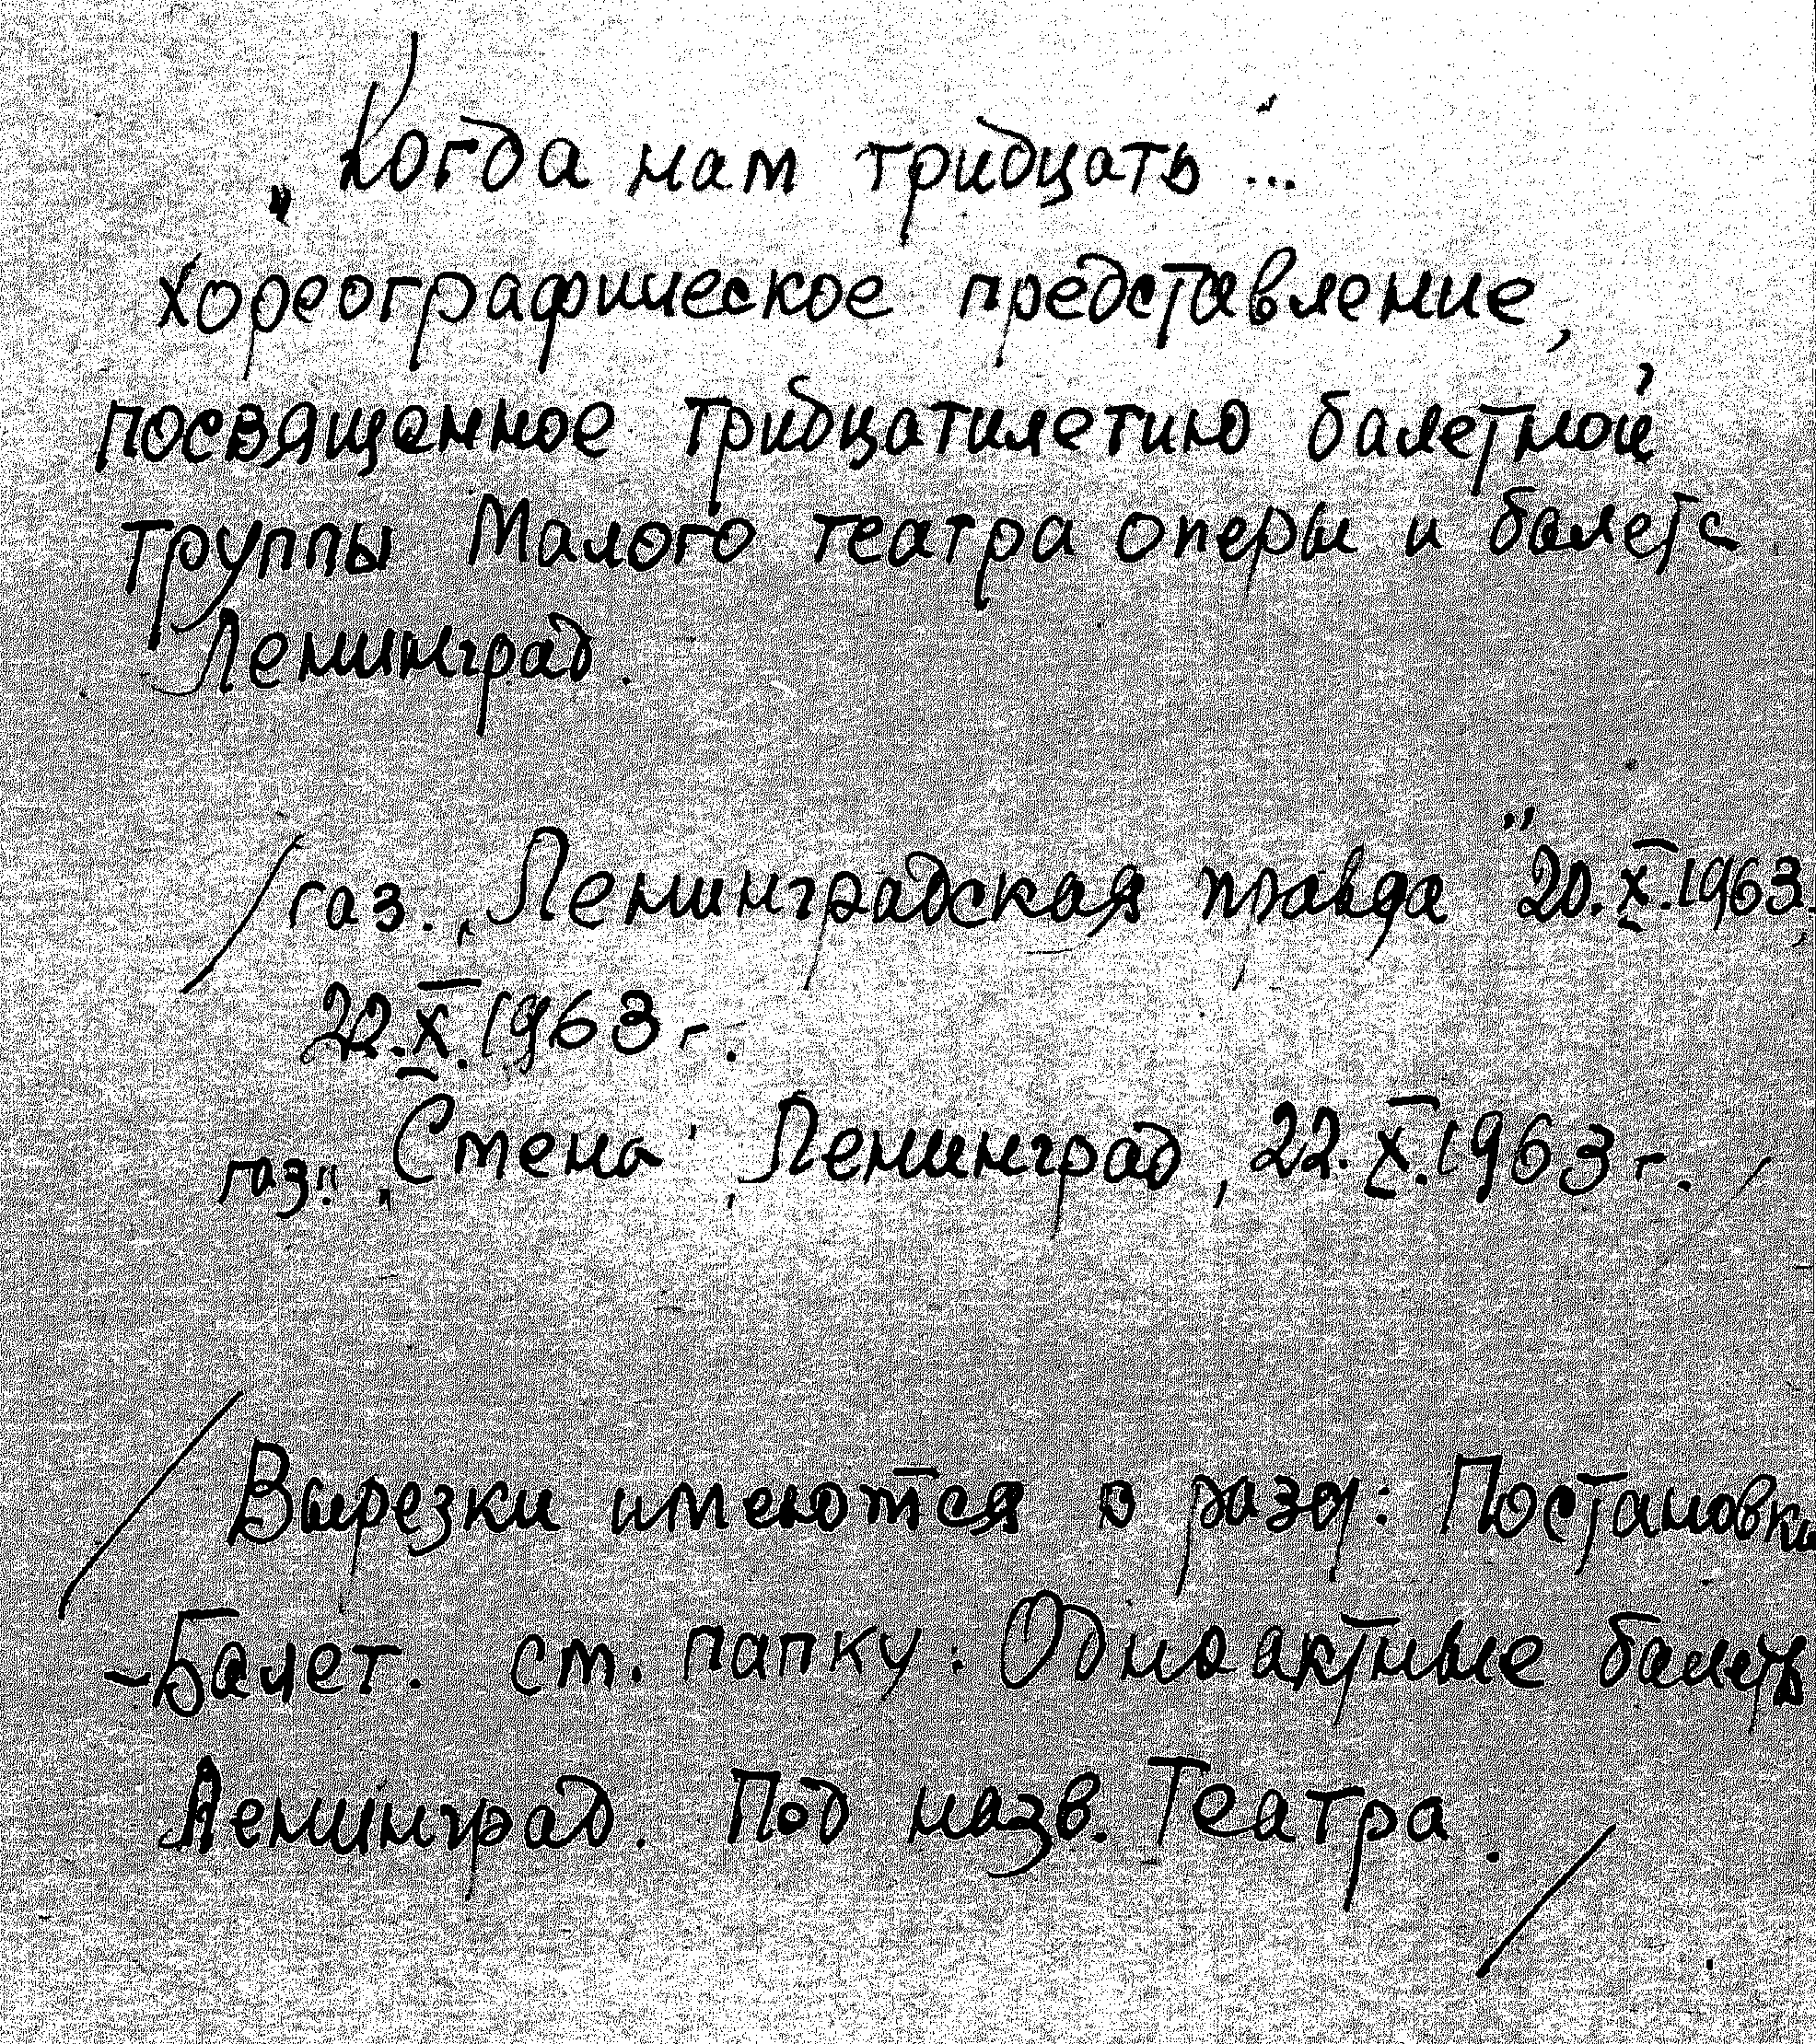 „Когда нам тридцать"...
хореографическое представление,
посвященное тридцатилетию балетной
труппы Малого театра оперы и балета
Ленинград.
/газ. „Ленинградская правда" 20.X.1963.
22.X.1963 г.
газ. „Смена", Ленинград, 22.X.1963 г. /
/Вырезки имеются в разд: Постановки
-Балет. см. папку: Одноактные балеты
Ленинград. Под назв. Театра. /